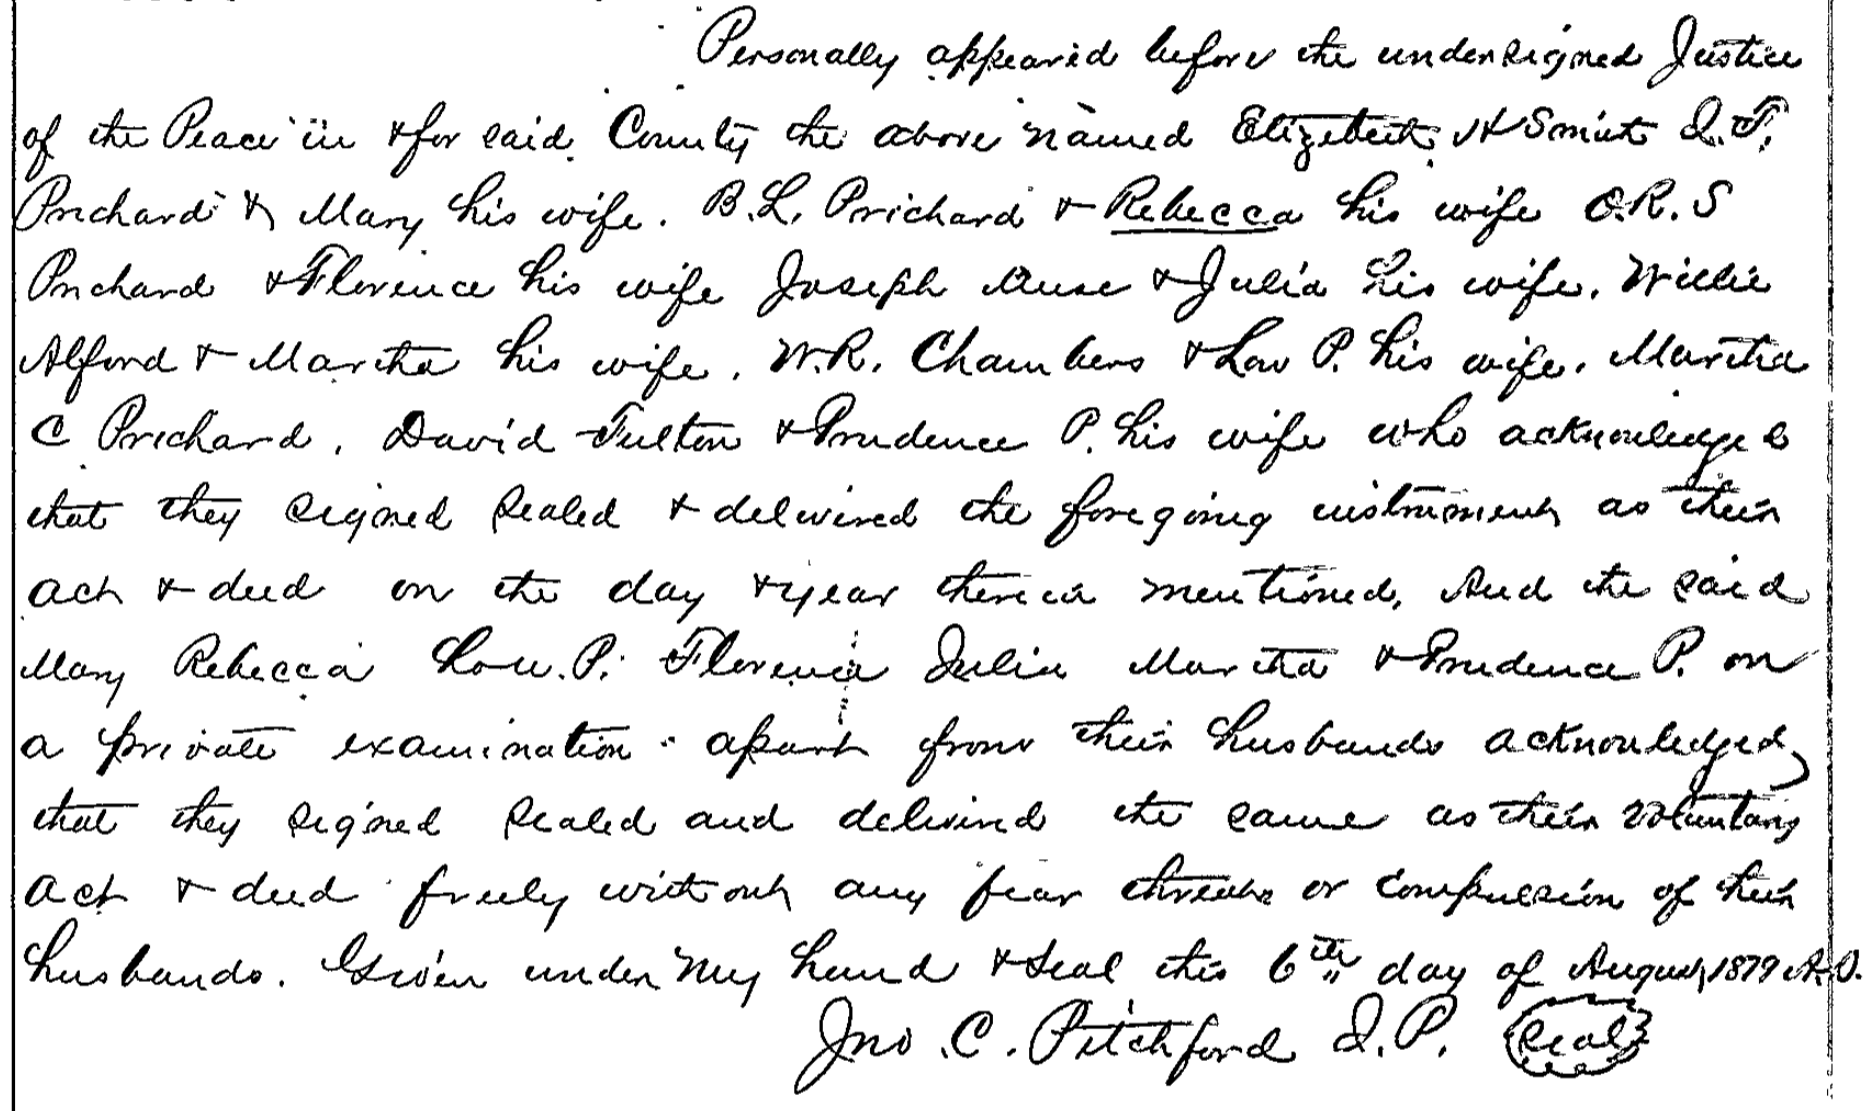 Personally appeared before the undersigned Justice
of the Peace in & for said County the above named Elizabeth H Smith J. T.
Prichard & Mary his wife. B. L. Prichard & Rebecca his wife O. R. S
Prichard & Florence his wife Joseph Muse & Julia his wife, Willie
Alford & Martha his wife, W. R. Chambers & Lou P. his wife, Martha
C Prichard, David Fulton & Prudence P. his wife who acknowledged
that they signed sealed & delivered the foregoing instrument as their
act & deed on the day & year therein mentioned, And the said
Mary Rebecca Lou. P. Florence Julia Martha & Prudence P. on
a private examination apart from their husbands acknowledged
that they signed sealed and delivered the same as their voluntary
act & deed freely without any fear threats or compulsion of their
husbands. Given under my hand & seal this 6th day of August 1879 A.D.
Jno. C. Pitchford J. P. Seal